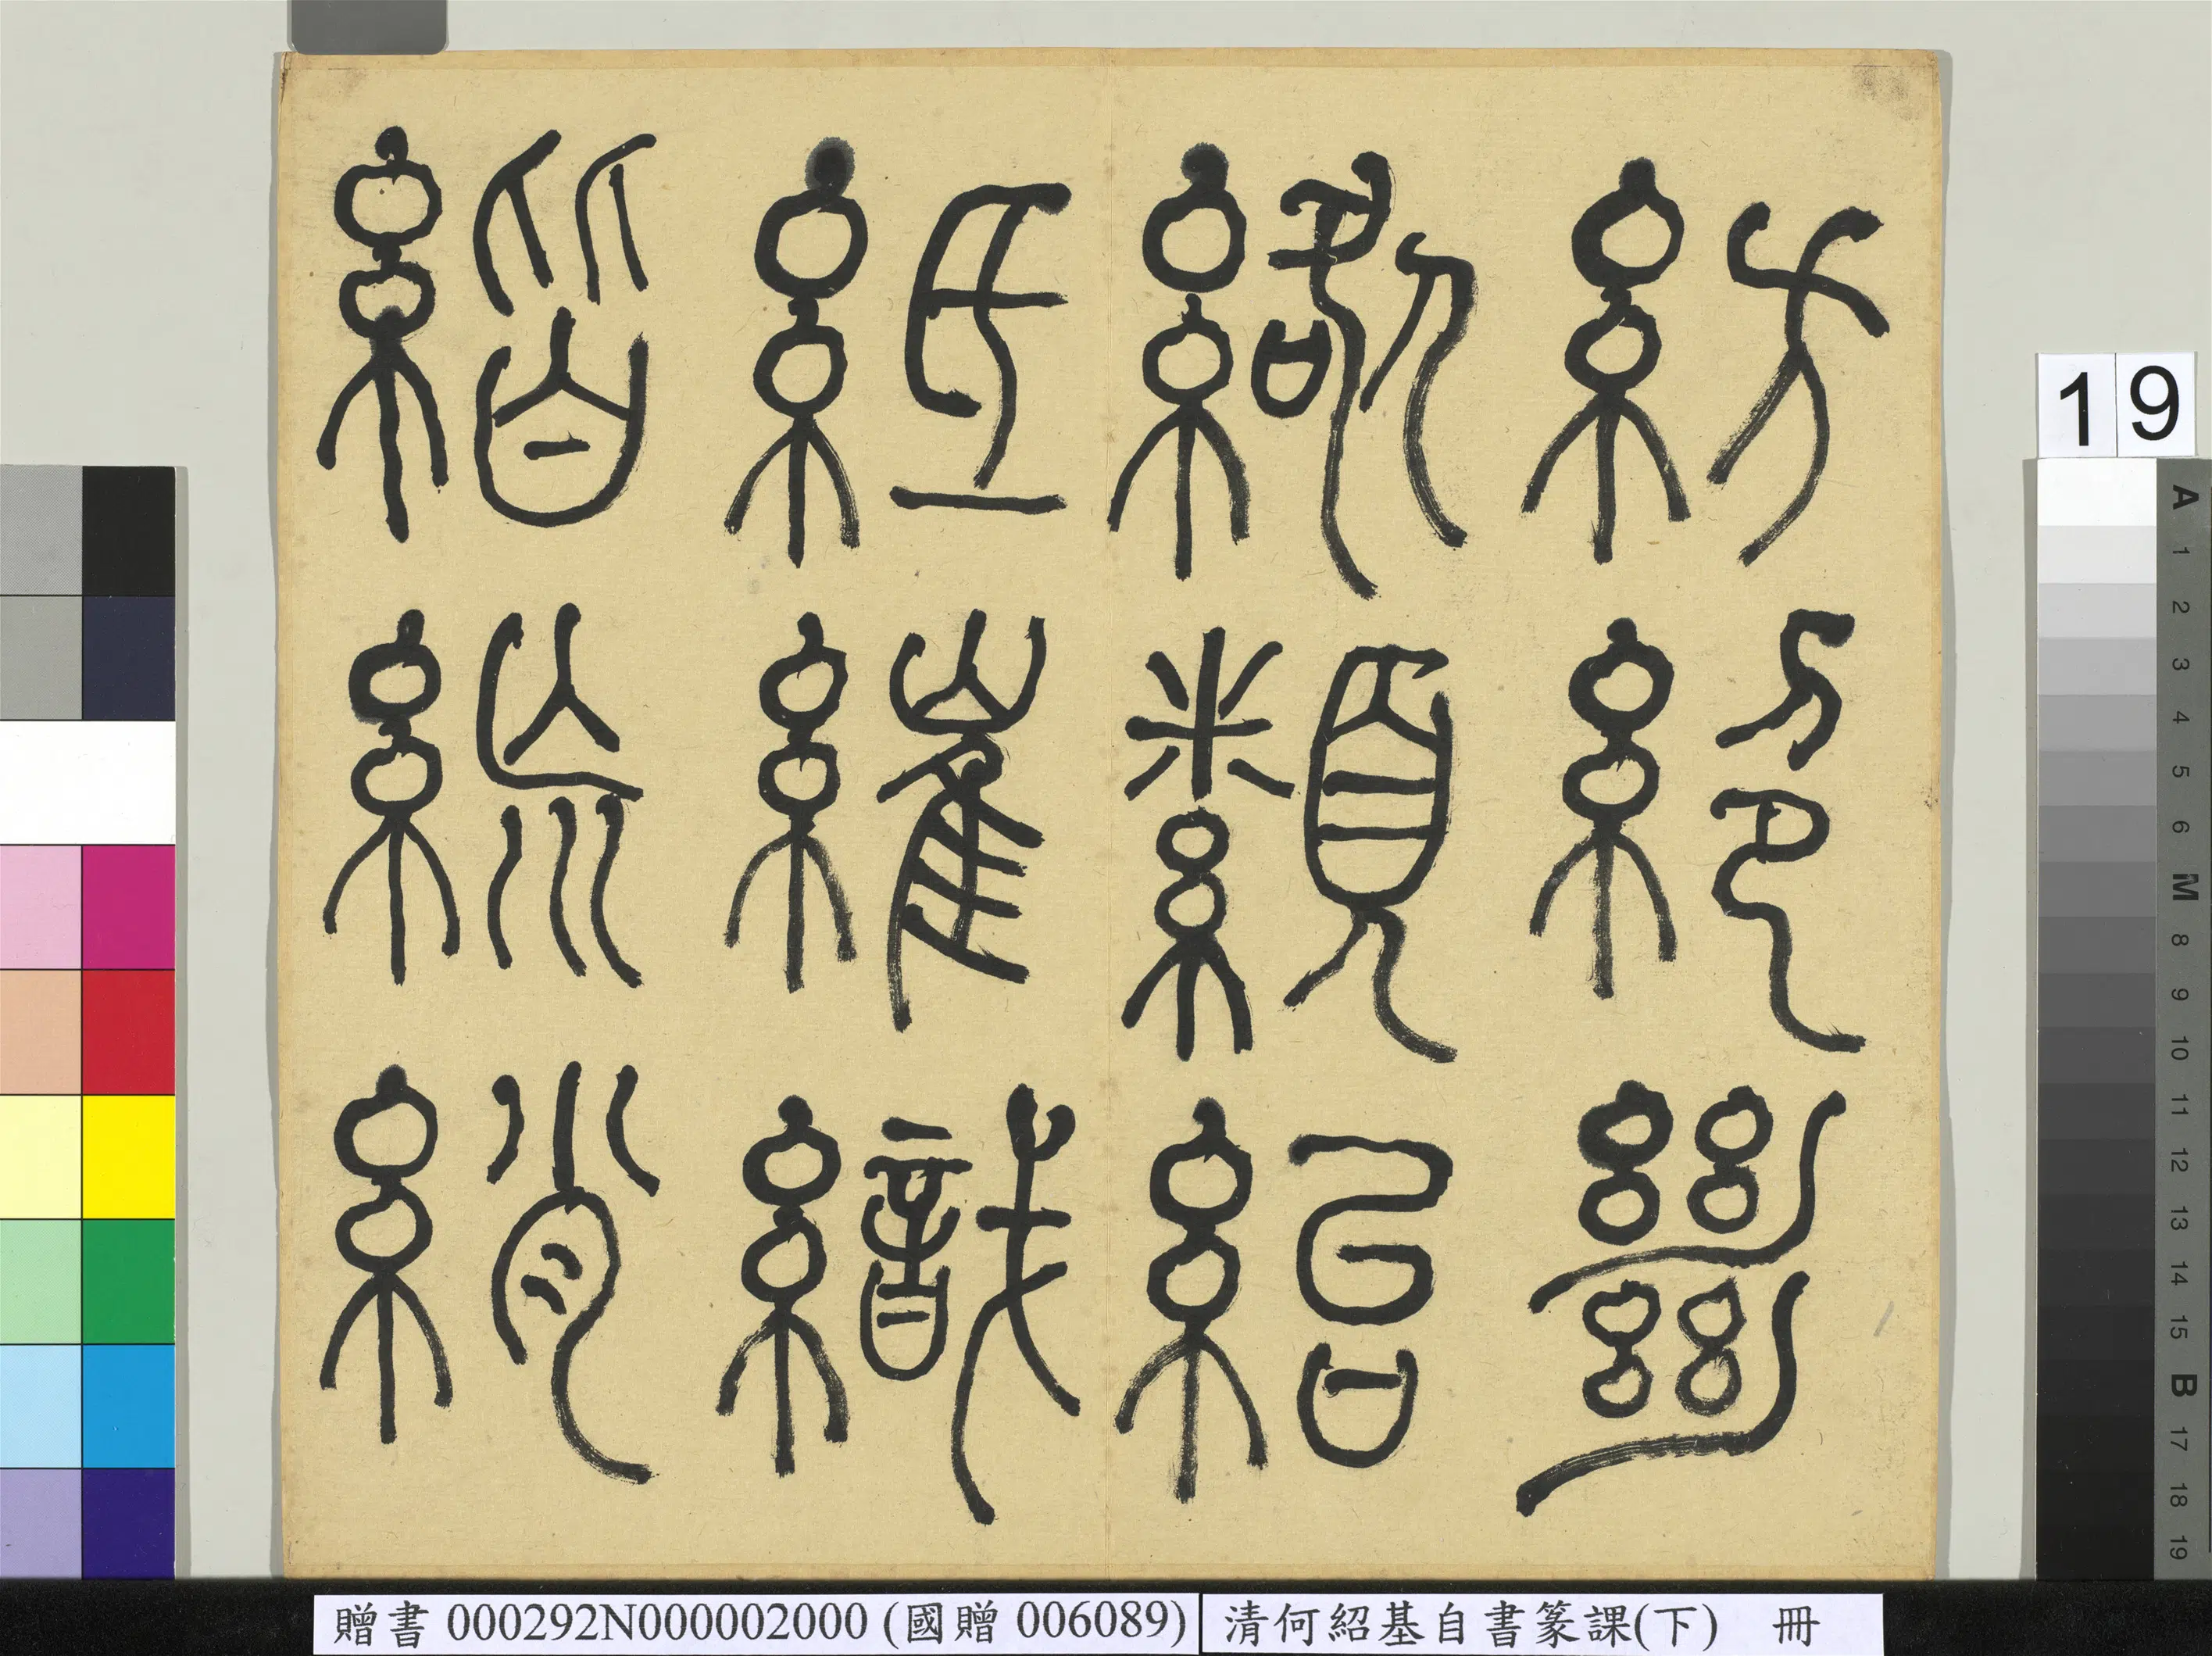 紡絕𢇍
纇紿
繀織
綃
19
贈書 000292N000002000 (國贈 006089)
清何紹基自書篆課(下) 冊
A 1 2 3 4 5 6 M 8 9 10 11 12 13 14 15 B 17 18 19